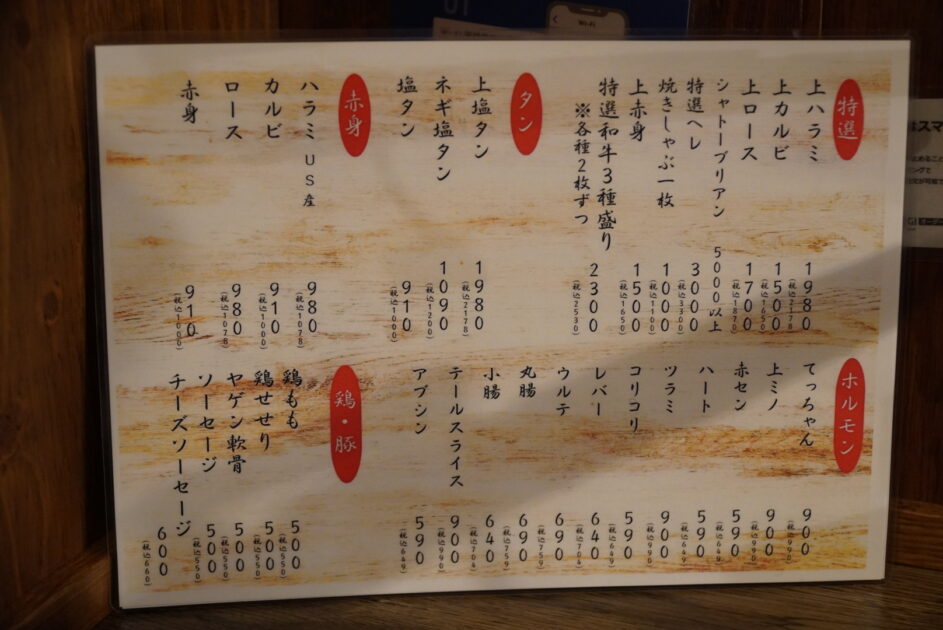 特選
上ハラミ 1980 (税込2178)
上カルビ 1500 (税込1650)
上ロース 1700 (税込1870)
シャトーブリアン 5000以上
特選ヘレ 3000 (税込3300)
焼きしゃぶ一枚 1000 (税込1100)
上赤身 1500 (税込1650)
特選和牛3種盛り 2300 (税込2530)
※各種2枚ずつ
タン
上塩タン 1980 (税込2178)
ネギ塩タン 1090 (税込1200)
塩タン 910 (税込1000)
赤身
ハラミ US産 980 (税込1078)
カルビ 910 (税込1000)
ロース 980 (税込1078)
赤身 910 (税込1000)
ホルモン
てっちゃん 900 (税込990)
上ミノ 900 (税込990)
赤セン 590 (税込649)
ハート 590 (税込649)
ツラミ 900 (税込990)
コリコリ 590 (税込649)
レバー 640 (税込704)
ウルテ 690 (税込759)
丸腸 690 (税込759)
小腸 640 (税込704)
テールスライス 900 (税込990)
アブシン 590 (税込649)
鶏・豚
鶏もも 500 (税込550)
鶏せせり 500 (税込550)
ヤゲン軟骨 500 (税込550)
ソーセージ 500 (税込550)
チーズソーセージ 600 (税込660)
Wi-Fi